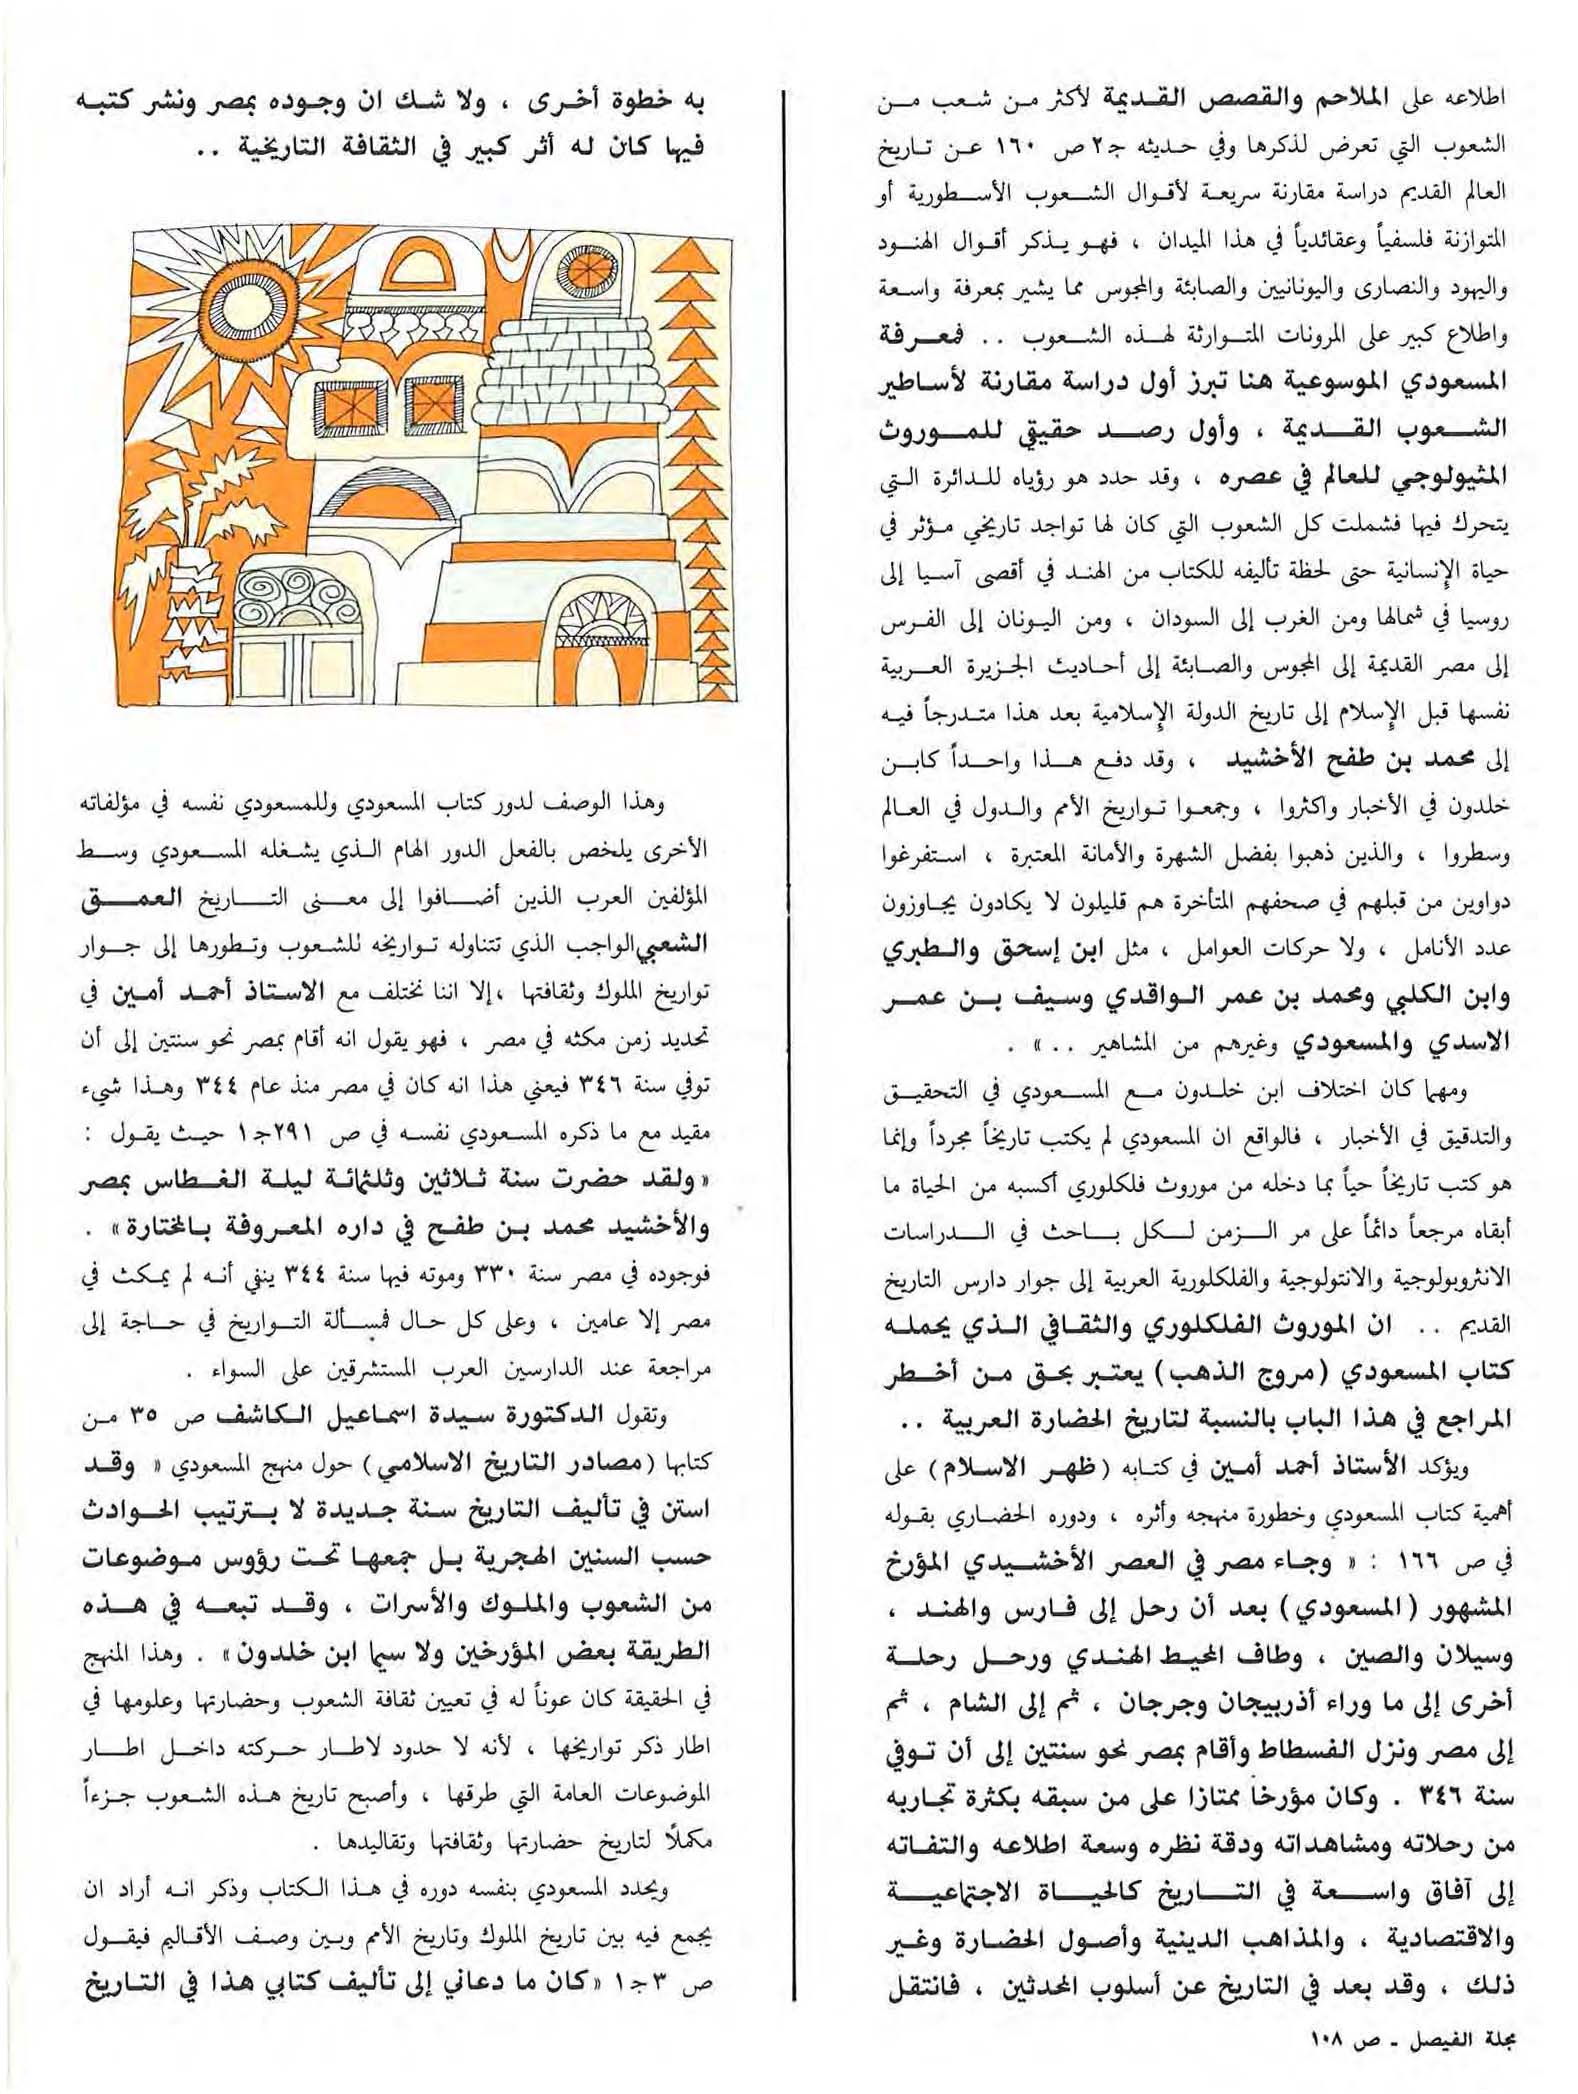 اطلاعه على الملاحم والقصص القديمة لأكثر من شعب من
الشعوب التي تعرض لذكرها وفي حديثه جـ٢ ص ١٦٠ عن تاريخ
العالم القديم دراسة مقارنة سريعة لأقوال الشعوب الأسطورية أو
المتوازنة فلسفياً وعقائدياً في هذا الميدان ، فهو يذكر أقوال الهنود
واليهود والنصارى واليونانيين والصابئة والمجوس مما يشير بمعرفة واسعة
واطلاع كبير على المرونات المتوارثة لهذه الشعوب . . فمعرفة
المسعودي الموسوعية هنا تبرز أول دراسة مقارنة لأساطير
الشعوب القديمة ، وأول رصد حقيقي للموروث
المثيولوجي للعالم في عصره ، وقد حدد هو رؤياه للدائرة التي
يتحرك فيها فشملت كل الشعوب التي كان لها تواجد تاريخي مؤثر في
حياة الإنسانية حتى لحظة تأليفه للكتاب من الهند في أقصى آسيا إلى
روسيا في شمالها ومن الغرب إلى السودان ، ومن اليونان إلى الفرس
إلى مصر القديمة إلى المجوس والصابئة إلى أحاديث الجزيرة العربية
نفسها قبل الإسلام إلى تاريخ الدولة الإسلامية بعد هذا متدرجاً فيه
إلى محمد بن طفح الأخشيد ، وقد دفع هذا واحداً كابن
خلدون في الأخبار واكثروا ، وجمعوا تواريخ الأمم والدول في العالم
وسطروا ، والذين ذهبوا بفضل الشهرة والأمانة المعتبرة ، استفرغوا
دواوين من قبلهم في صحفهم المتأخرة هم قليلون لا يكادون يجاوزون
عدد الأنامل ، ولا حركات العوامل ، مثل ابن إسحق والطبري
وابن الكلبي ومحمد بن عمر الواقدي وسيف بن عمر
الاسدي والمسعودي وغيرهم من المشاهير . . » .
ومهما كان اختلاف ابن خلدون مع المسعودي في التحقيق
والتدقيق في الأخبار ، فالواقع ان المسعودي لم يكتب تاريخاً مجرداً وإنما
هو كتب تاريخاً حياً بما دخله من موروث فلكلوري أكسبه من الحياة ما
أبقاه مرجعاً دائماً على مر الزمن لكل باحث في الدراسات
الانثروبولوجية والانتولوجية والفلكلورية العربية إلى جوار دارس التاريخ
القديم . . ان الموروث الفلكلوري والثقافي الذي يحمله
كتاب المسعودي (مروج الذهب) يعتبر بحق من أخطر
المراجع في هذا الباب بالنسبة لتاريخ الحضارة العربية . .
ويؤكد الأستاذ أحمد أمين في كتابه (ظهر الاسلام) على
أهمية كتاب المسعودي وخطورة منهجه وأثره ، ودوره الحضاري بقوله
في ص ١٦٦ : « وجاء مصر في العصر الأخشيدي المؤرخ
المشهور (المسعودي) بعد أن رحل إلى فارس والهند ،
وسيلان والصين ، وطاف المحيط الهندي ورحل رحلة
أخرى إلى ما وراء أذربيجان وجرجان ، ثم إلى الشام ، ثم
إلى مصر ونزل الفسطاط وأقام بمصر نحو سنتين إلى أن توفي
سنة ٣٤٦ . وكان مؤرخاً ممتازا على من سبقه بكثرة تجاربه
من رحلاته ومشاهداته ودقة نظره وسعة اطلاعه والتفاته
إلى آفاق واسعة في التاريخ كالحياة الاجتماعية
والاقتصادية ، والمذاهب الدينية وأصول الحضارة وغير
ذلك ، وقد بعد في التاريخ عن أسلوب المحدثين ، فانتقل
به خطوة أخرى ، ولا شك ان وجوده بمصر ونشر كتبه
فيها كان له أثر كبير في الثقافة التاريخية . .
وهذا الوصف لدور كتاب المسعودي وللمسعودي نفسه في مؤلفاته
الأخرى يلخص بالفعل الدور الهام الذي يشغله المسعودي وسط
المؤلفين العرب الذين أضافوا إلى معنى التاريخ العمق
الشعبي الواجب الذي تتناوله تواريخه للشعوب وتطورها إلى جوار
تواريخ الملوك وثقافتها ، إلا اننا نختلف مع الاستاذ أحمد أمين في
تحديد زمن مكثه في مصر ، فهو يقول انه أقام بمصر نحو سنتين إلى أن
توفي سنة ٣٤٦ فيعني هذا انه كان في مصر منذ عام ٣٤٤ وهذا شيء
مقيد مع ما ذكره المسعودي نفسه في ص ٢٩١جـ١ حيث يقول :
« ولقد حضرت سنة ثلاثين وثلثمائة ليلة الغطاس بمصر
والأخشيد محمد بن طفح في داره المعروفة بالمختارة » .
فوجوده في مصر سنة ٣٣٠ وموته فيها سنة ٣٤٤ ينفي أنه لم يمكث في
مصر إلا عامين ، وعلى كل حال فمسألة التواريخ في حاجة إلى
مراجعة عند الدارسين العرب المستشرقين على السواء .
وتقول الدكتورة سيدة اسماعيل الكاشف ص ٣٥ من
كتابها (مصادر التاريخ الاسلامي) حول منهج المسعودي « وقد
استن في تأليف التاريخ سنة جديدة لا بترتيب الحوادث
حسب السنين الهجرية بل جمعها تحت رؤوس موضوعات
من الشعوب والملوك والأسرات ، وقد تبعه في هذه
الطريقة بعض المؤرخين ولا سيما ابن خلدون » . وهذا المنهج
في الحقيقة كان عوناً له في تعيين ثقافة الشعوب وحضارتها وعلومها في
اطار ذكر تواريخها ، لأنه لا حدود لاطار حركته داخل اطار
الموضوعات العامة التي طرقها ، وأصبح تاريخ هذه الشعوب جزءاً
مكملاً لتاريخ حضارتها وثقافتها وتقاليدها .
ويحدد المسعودي بنفسه دوره في هذا الكتاب وذكر انه أراد ان
يجمع فيه بين تاريخ الملوك وتاريخ الأمم وبين وصف الأقاليم فيقول
ص ٣جـ١ «كان ما دعاني إلى تأليف كتابي هذا في التاريخ
مجلة الفيصل - ص ١٠٨